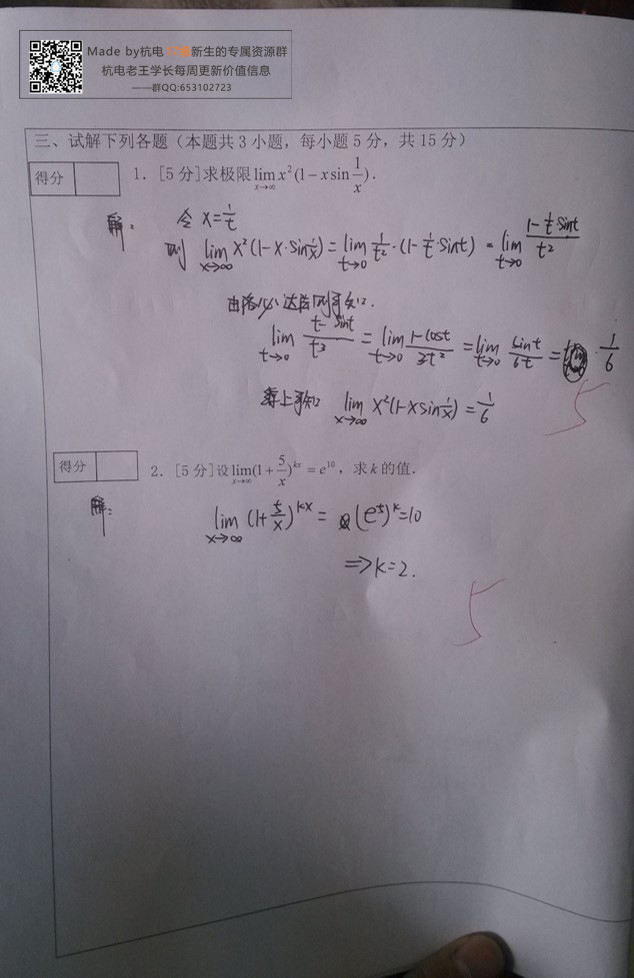 Made by杭电1/8新生的专属资源群
杭电老王学长每周更新价值信息
——群QQ:653102723
三、试解下列各题（本题共3小题，每小题5分，共15分）
得分
1. [5分]求极限 lim_{x→∞} x²(1−x sin 1/x).
解: 令 x=1/t
则 lim_{x→∞} x²(1−x·sin 1/x) = lim_{t→0} 1/t²·(1−1/t·sint) = lim_{t→0} (1−1/t·sint)/t²
由洛必达法则可知:
lim_{t→0} (t−sint)/t³ = lim_{t→0} (1−cost)/3t² = lim_{t→0} sint/6t = 1/6
综上可知 lim_{x→∞} x²(1−x sin 1/x) = 1/6
5
得分
2. [5分]设 lim_{x→∞} (1+5/x)^{kx} = e^{10}, 求k的值.
解:
lim_{x→∞} (1+5/x)^{kx} = (e^5)^k=10
⇒k=2.
5